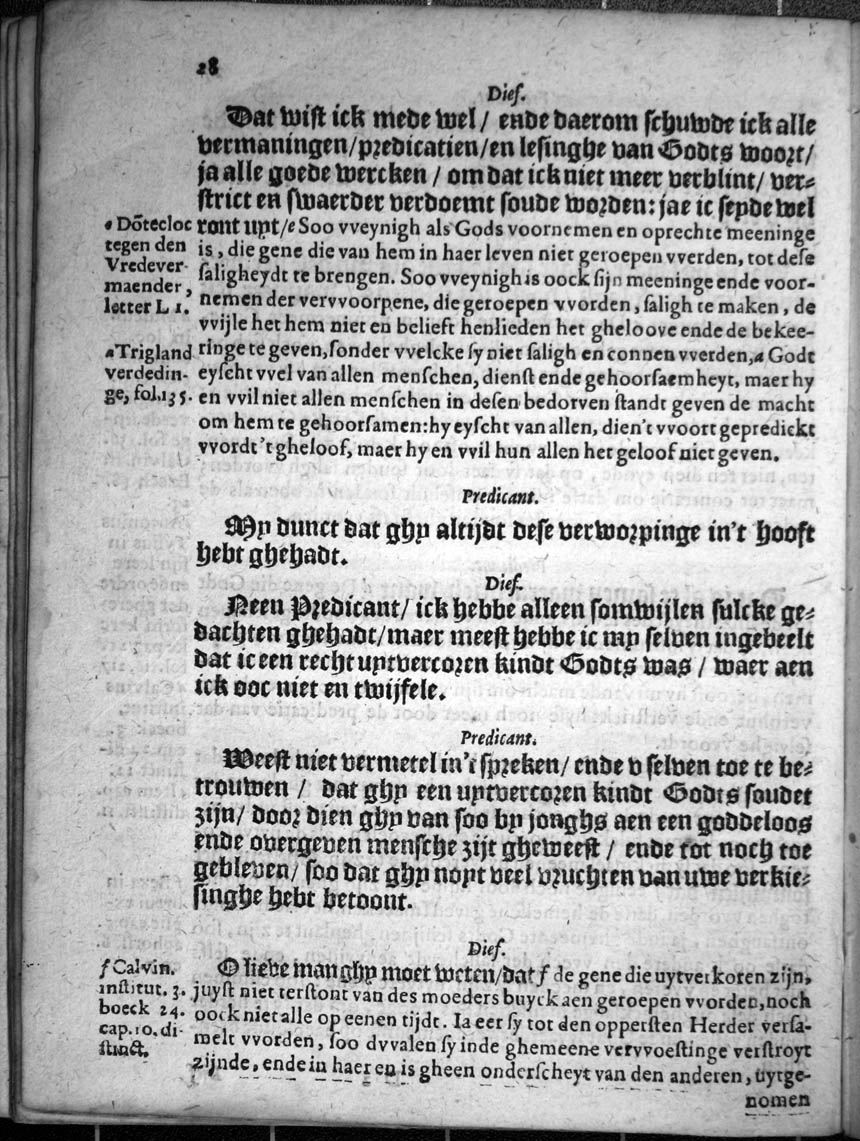 28
Dief.
Dat wist ick mede wel / ende daerom schuwde ick alle
vermaningen/predicatien/en lesinghe van Godts woort/
ja alle goede wercken / om dat ick niet meer verblint/ ver-
strict en swaerder verdoemt soude worden: jae ic seyde wel
ront uyt/e Soo vveynigh als Gods voornemen en oprechte meeninge
is, die gene die van hem in haer leven niet geroepen vverden, tot dese
saligheydt te brengen. Soo vveynigh is oock sijn meeninge ende voor-
nemen der vervvoorpene, die geroepen vvorden, saligh te maken, de
vvijle het hem niet en belieft henlieden het gheloove ende de bekee-
ringe te geven, sonder vvelcke sy niet saligh en connen vverden, a Godt
eyscht vvel van allen menschen, dienst ende gehoorsaemheyt, maer hy
en vvil niet allen menschen in desen bedorven standt geven de macht
om hem te gehoorsamen: hy eyscht van allen, dien't vvoort gepredickt
vvordt 't gheloof, maer hy en vvil hun allen het geloof niet geven.
e Dōtecloc
tegen den
Vredever-
maender,
letter L 1.
a Trigland
verdedin-
ge, fol.135.
Predicant.
My dunct dat ghy altijdt dese verworpinge in't hooft
hebt ghehadt.
Dief.
Neen Predicant/ ick hebbe alleen somwijlen sulcke ge-
dachten ghehadt/maer meest hebbe ic my selven ingebeelt
dat ic een recht uytvercoren kindt Godts was / waer aen
ick ooc niet en twijfele.
Predicant.
Weest niet vermetel in't spreken/ ende v selven toe te be-
trouwen / dat ghy een uytvercoren kindt Godts soudet
zijn/ door dien ghy van soo by jonghs aen een goddeloos
ende overgeven mensche zijt gheweest / ende tot noch toe
gebleven/ soo dat ghy noyt veel vruchten van uwe verkie-
singhe hebt betoont.
Dief.
O lieve man ghy moet weten/dat f de gene die uytverkoren zijn,
juyst niet terstont van des moeders buyck aen geroepen vvorden, noch
oock niet alle op eenen tijdt. Ia eer sy tot den oppersten Herder versa-
melt vvorden, soo dvvalen sy inde ghemeene vervvoestinge verstroyt
zijnde, ende in haer en is gheen onderscheyt van den anderen, uytge-
nomen
f Calvin.
institut. 3.
boeck 24.
cap.10. di-
stinct.